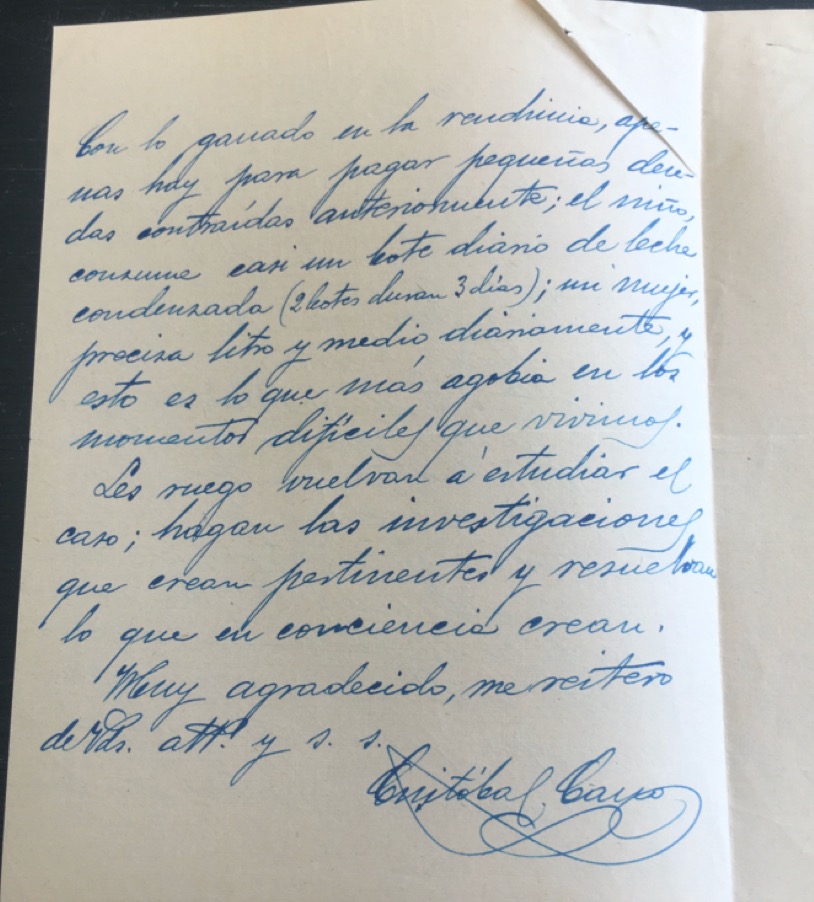 Con lo ganado en la vendimia, ape-
nas hay para pagar pequeñas deu-
das contraídas anteriormente; el niño,
consume casi un bote diario de leche
condensada (2 botes duran 3 días); mi mujer,
precisa litro y medio diariamente, y
esto es lo que más agobia en los
momentos difíciles que vivimos.
Les ruego vuelvan á estudiar el
caso; hagan las investigaciones
que crean pertinentes y resuelvan
lo que en conciencia crean.
Muy agradecido, me reitero
de Vds. attº. y s. s.
Cristóbal